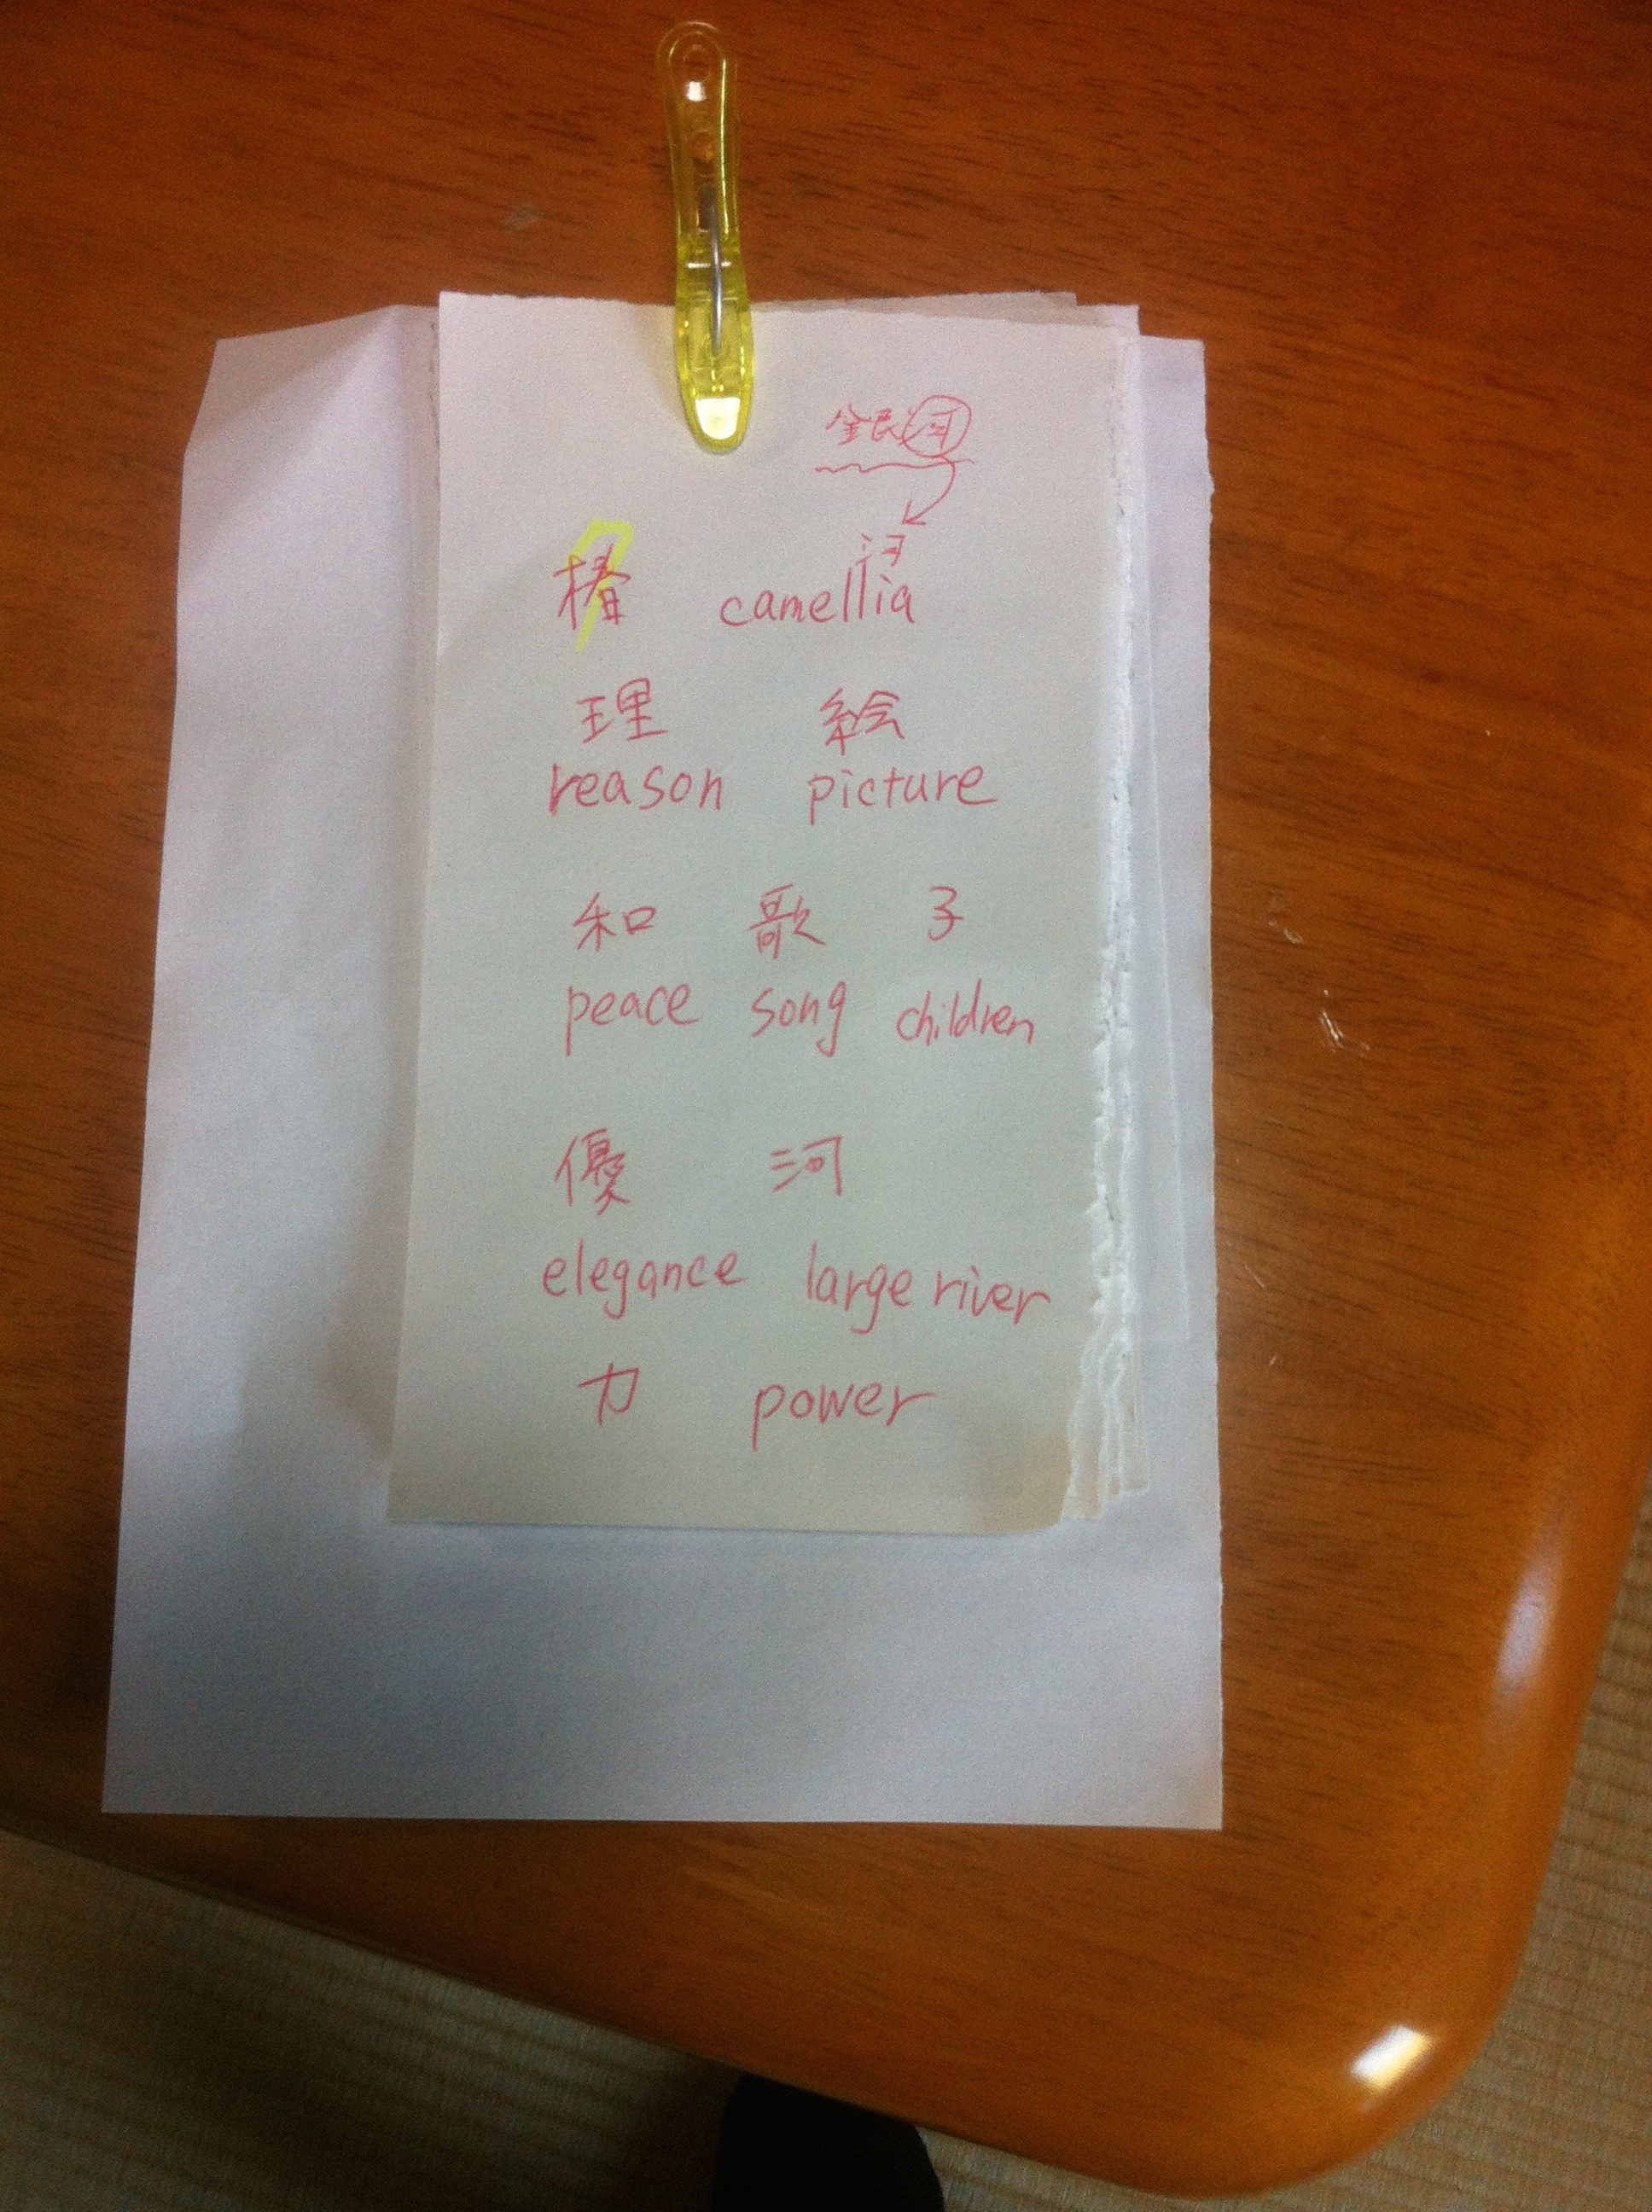 金民河
河
椿 camellia
理 絵
reason picture
和 歌 子
peace song children
優 河
elegance large river
力 power